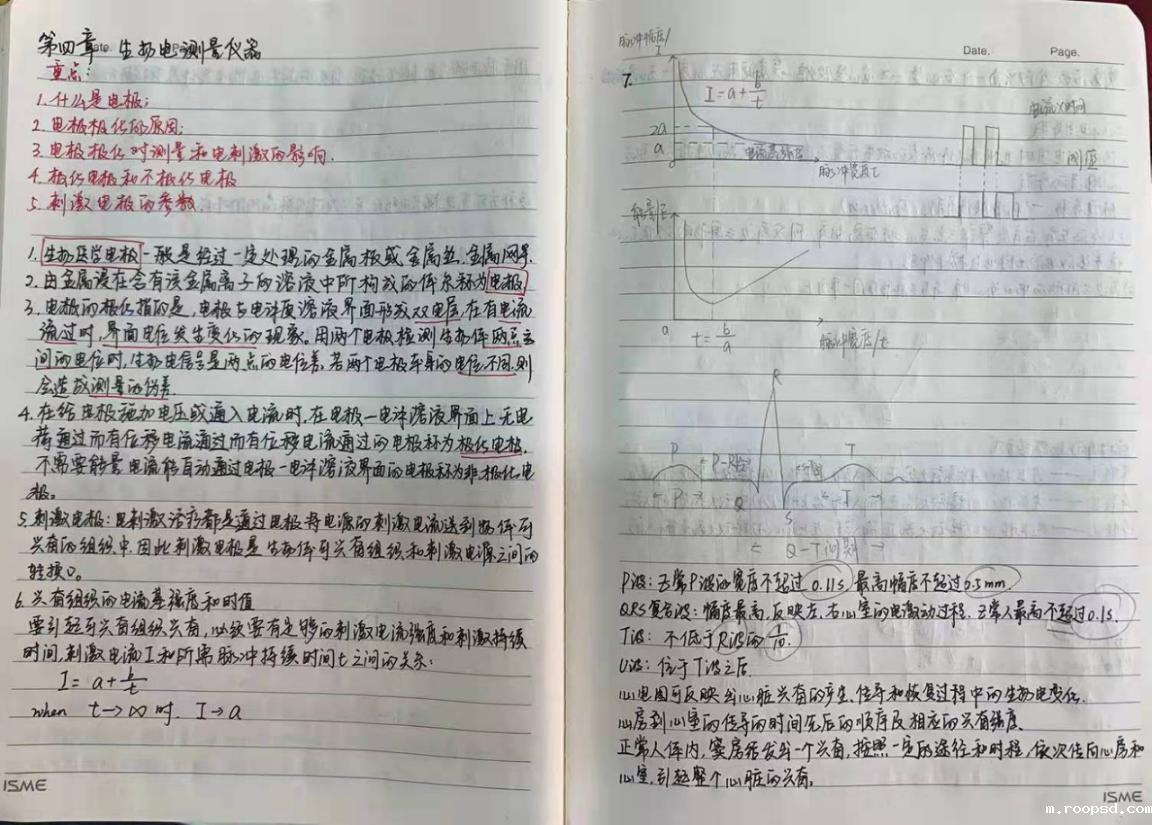 第四章 生物电测量仪器
重点:
1. 什么是电极;
2. 电极极化的原因;
3. 电极极化对测量和电刺激的影响.
4. 极化电极和不极化电极
5. 刺激电极的参数.
1. 生物医学电极一般是经过一定处理的金属板或金属丝.金属网等.
2. 由金属浸在含有该金属离子的溶液中所构成的体系称为电极
3. 电极的极化指的是,电极与电冲质溶液界面形成双电层,在有电流
流过时,界面电位发生变化的现象。用两个电极检测生物体两点之
间的电位时,生物电信号是两点的电位差,若两个电极本身的电位不同.则
会造成测量的伪差.
4. 在给电极施加电压或通入电流时,在电极一电冲溶液界面上无电
荷通过而有位移电流通过而有位移电流通过的电极称为极化电极.
不需要能量电流能自动通过电极一电冲溶液界面的电极称为非极化电
极。
5. 刺激电极:电刺激治疗都是通过电极将电源的刺激电流送到物体可
兴奋的组织中.因此刺激电极是生物体可兴奋组织和刺激电源之间的
转换口。
6. 兴奋组织的电流基强度和时值
要引起可兴奋组织兴奋,必须要有足够的刺激电流强度和刺激持续
时间,刺激电流I和所需脉冲持续时间t之间的关系:
I = a + b/t
when t→∞时. I→a
ISME
Date. Page.
脉冲幅度/I
7.
I=a+b/t
2a
a
0
电流基强度
脉冲宽度t
阈值
能量/E
0
t=b/a
脉冲宽度/t
R
P
P-R段
T
P
Q
S
T
Q-T间期
P波:正常P波的宽度不超过0.11s 最高幅度不超过0.5mm.
QRS复合波:幅度最高,反映左.右心室的电激动过程.正常人最高不超过0.1s.
T波:不低于R波的1/10.
U波:位于T波之后.
心电图可反映出心脏兴奋的产生.传导和恢复过程中的生物电变化.
心房到心室的传导的时间先后的顺序及相应的兴奋强度.
正常人体内,窦房结发出一个兴奋,按照一定的途径和时程,依次传向心房和
心室,引起整个心脏的兴奋。
ISME
m.roopsd.com